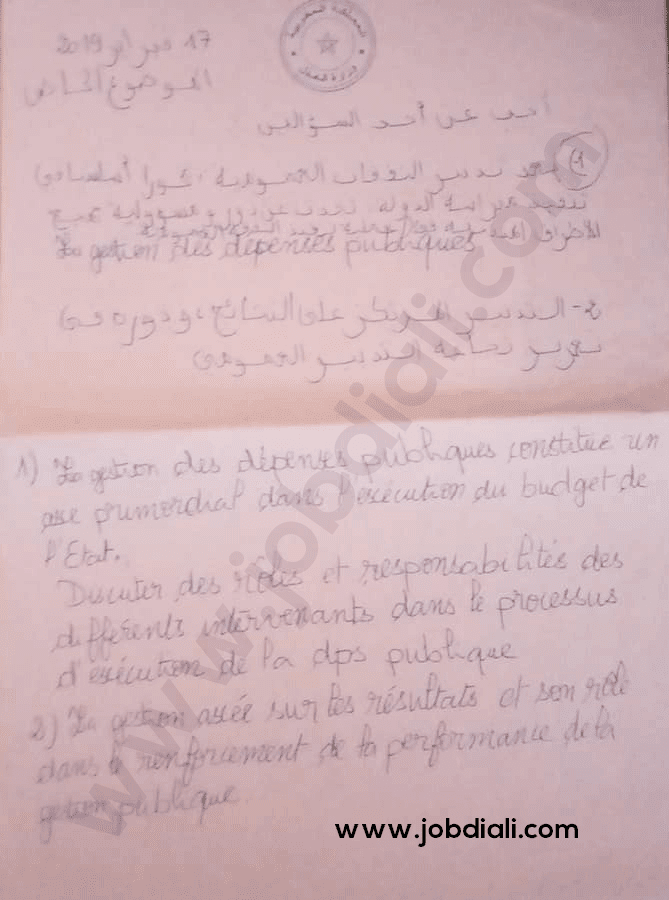 17 فبراير 2019
الموضوع الخاص
أجب عن أحد السؤالين
1) يعد تدبير النفقات العمومية محورا أساسيا في
تنفيذ ميزانية الدولة. تحدث عن دور ومسؤولية جميع
La gestion des dépenses publiques
2- التدبير المرتكز على النتائج، ودوره في
تعزيز نجاعة التدبير العمومي
1) La gestion des dépenses publiques constitue un
axe primordial dans l'exécution du budget de
l'Etat.
Discuter des rôles et responsabilités des
différents intervenants dans le processus
d'exécution de la dps publique
2) La gestion axée sur les résultats et son rôle
dans le renforcement de la performance de la
gestion publique.
www.jobdiali.com
www.jobdiali.com